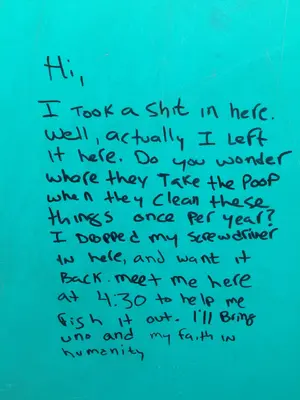 Hi,
I Took a Shit in here.
Well, actually I Left
it here. Do you wonder
where they Take the Poop
when they Clean these
things once Per year?
I Dropped my Screwdriver
in here, and want it
Back. meet me here
at 4:30 to help me
fish it out. I'll Bring
uno and my faith in
humanity